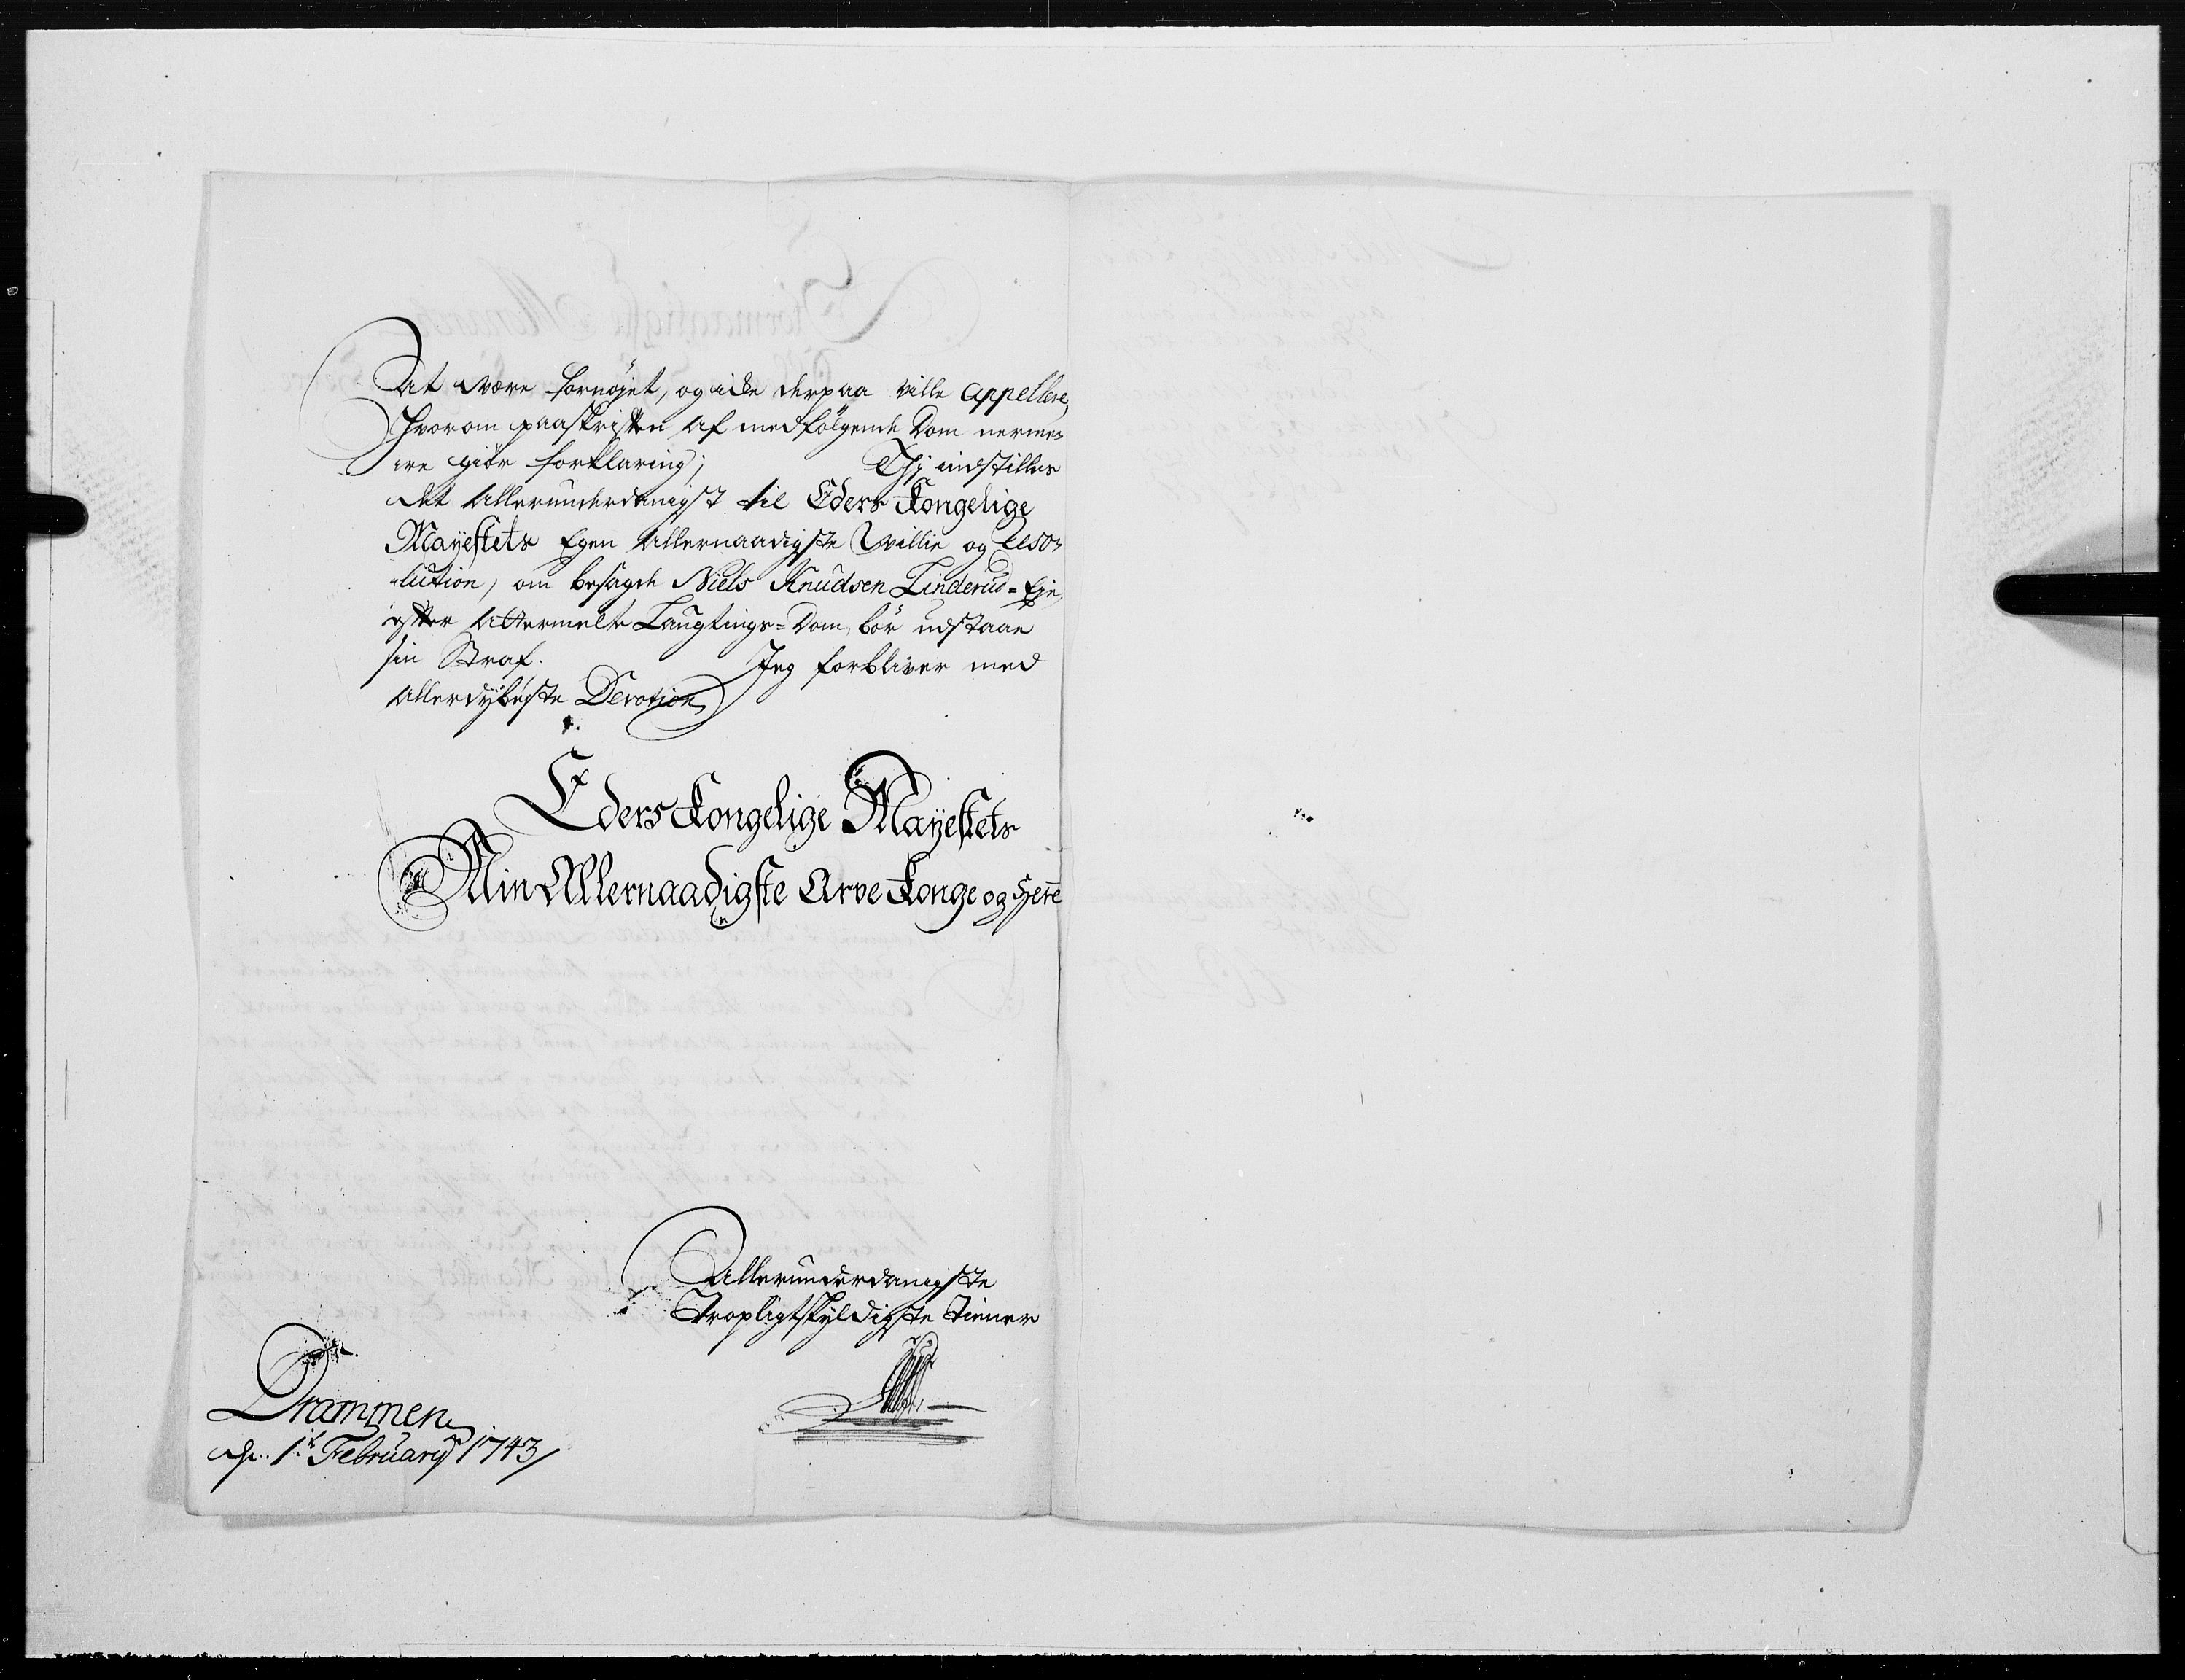 At være fornøjet, og icke derpaa ville appellere,
Hvorom paaskriften af medfølgende Dom nerme=
ere giør forklaring; Thj indstilles
det Allerunderdanigst til Eders Kongelige
Mayestets Egen Allernaadigste Villie og Reso=
lution, om besagde Niels Knudsen Linderud=Eje,
efter Attermelte Laugtings=Dom, bør udstaae
sin Straf. Jeg forbliver med
Allerdybeste Devotion
Eders Kongelige Mayestets
Min Allernaadigste Arve Konge og Herre
Allerunderdanigste
Tropligtskyldigste Tiener
Drammen
d. 1t. February 1743